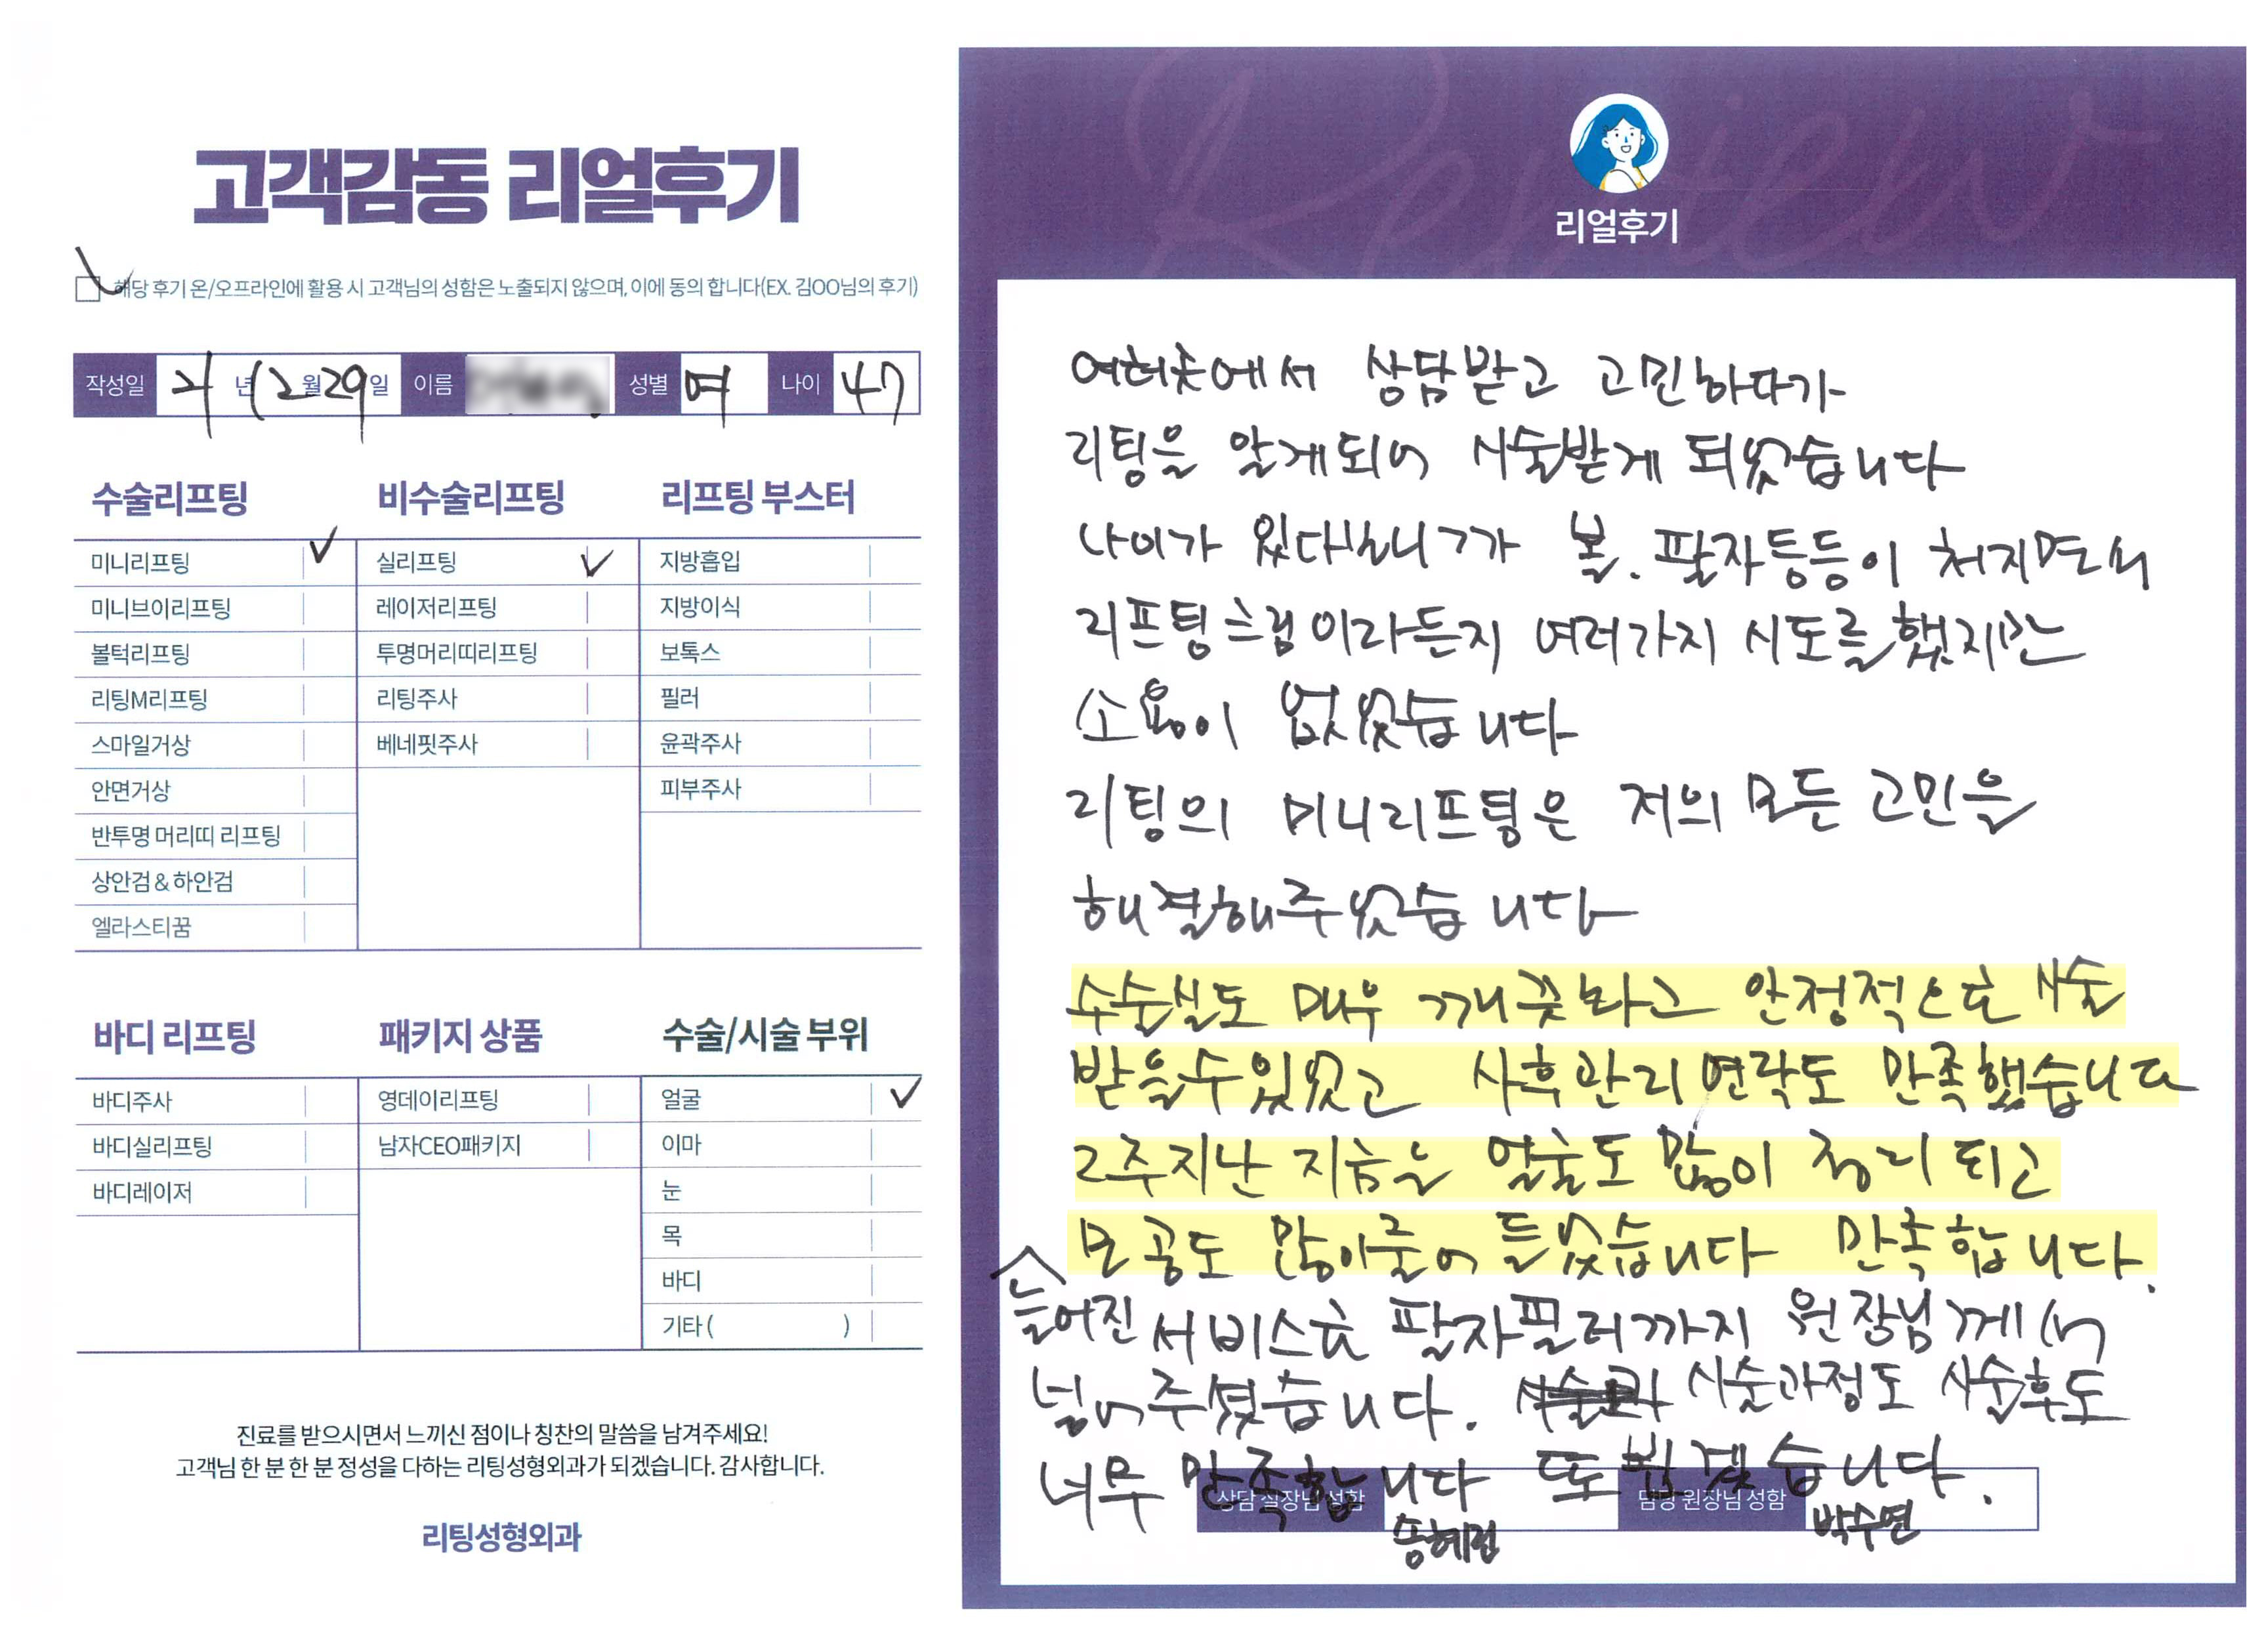 고객감동 리얼후기
해당 후기 온/오프라인에 활용 시 고객님의 성함은 노출되지 않으며, 이에 동의 합니다(EX. 김OO님의 후기)
작성일 21 년 12 월 29 일 이름 성별 여 나이 47
수술리프팅
미니리프팅 ✓
미니브이리프팅
볼턱리프팅
리팅M리프팅
스마일거상
안면거상
반투명 머리띠 리프팅
상안검 & 하안검
엘라스티꿈
비수술리프팅
실리프팅 ✓
레이저리프팅
투명머리띠리프팅
리팅주사
베네핏주사
리프팅 부스터
지방흡입
지방이식
보톡스
필러
윤곽주사
피부주사
바디 리프팅
바디주사
바디실리프팅
바디레이저
패키지 상품
영데이리프팅
남자CEO패키지
수술/시술 부위
얼굴 ✓
이마
눈
목
바디
기타 ( )
진료를 받으시면서 느끼신 점이나 칭찬의 말씀을 남겨주세요!
고객님 한 분 한 분 정성을 다하는 리팅성형외과가 되겠습니다. 감사합니다.
리팅성형외과
Review
리얼후기
여러곳에서 상담받고 고민하다가
리팅을 알게되어 시술받게 되었습니다
나이가 있다보니까 볼. 팔자등등이 처지면서
리프팅크림이라든지 여러가지 시도를 했지만
소용이 없었습니다
리팅의 미니리프팅은 저의 모든 고민을
해결해주었습니다
수술실도 매우 깨끗하고 안정적으로 시술
받을수있었고 사후관리 연락도 만족했습니다
2주지난 지금은 얼굴도 많이 정리 되고
모공도 많이줄어 들었습니다 만족합니다.
늘어진 서비스로 팔자필러까지 원장님께서
넣어주셨습니다. 시술과정도 시술후도
너무 만족합니다 또 뵙겠습니다.
상담 실장님 성함 송혜린 담당 원장님 성함 박수연